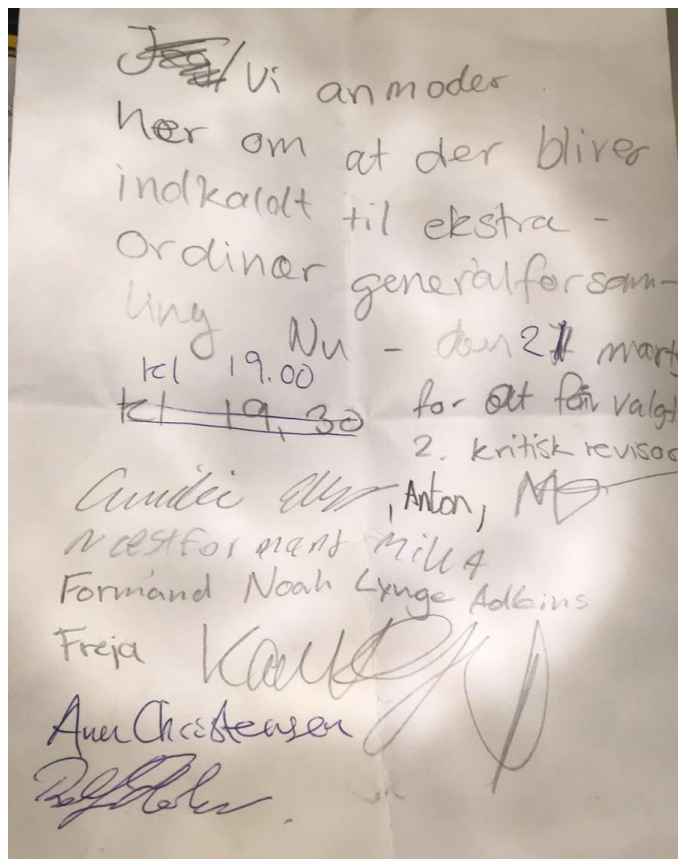 Jeg/ Vi anmoder
her om at der bliver
indkaldt til ekstra-
ordinær generalforsam-
ling Nu - den 21 marts
kl 19.00
kl 19,30 for at få valgt
2. kritisk revisor
, Anton,
Næstformand Milla
Formand Noah Lynge Adkins
Freja
Christensen